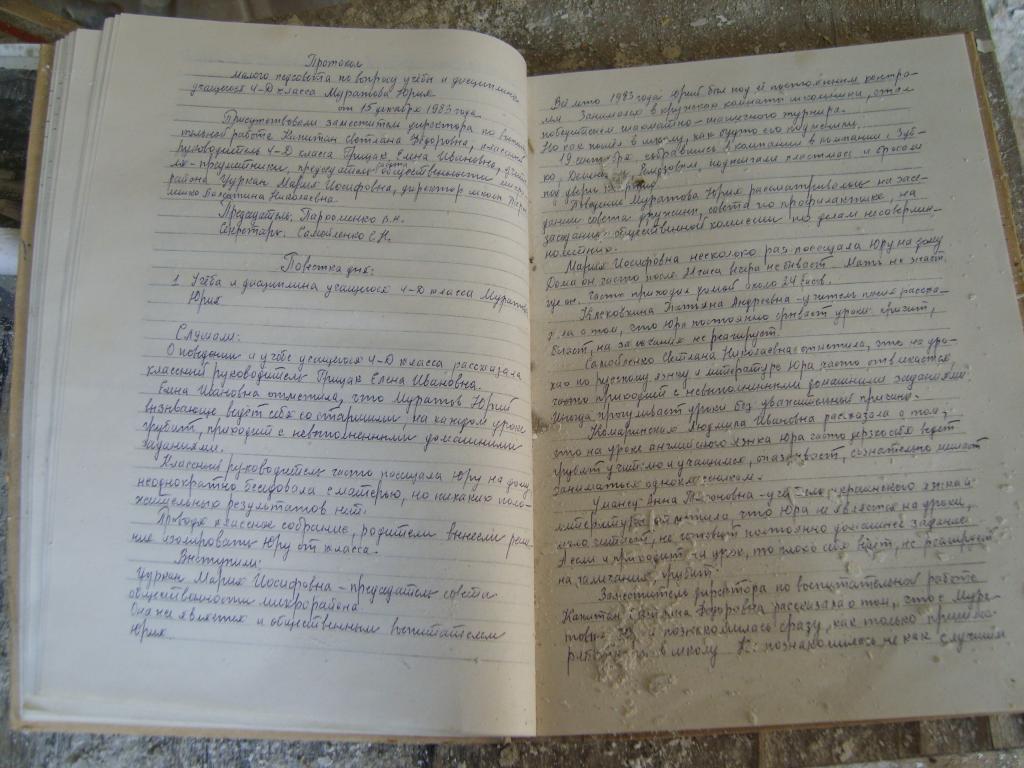 Протокол
малого педсовета по вопросу учёбы и дисциплины
учащегося 4-Д класса Муратова Юрия
от 15 декабря 1983 года.
Присутствовали: заместитель директора по воспита-
тельной работе Капитан Светлана Фёдоровна, классный
руководитель 4-Д класса Грищак Елена Ивановна, учите-
ля-предметники, председатель совета общественности микро-
района Цуркан Мария Иосифовна, директор школы
Николаевна.
Председатель: Пархоменко В.Н.
Секретарь: Самойленко С.Н.
Повестка дня:
1. Учёба и дисциплина учащегося 4-Д класса Муратова
Юрия
Слушали:
О поведении и учёбе учащегося 4-Д класса рассказала
классный руководитель Грищак Елена Ивановна.
Елена Ивановна отметила, что Муратов Юрий
вызывающе ведёт себя со старшими, на каждом уроке
грубит, приходит с невыполненными домашними
заданиями.
Классный руководитель часто посещала Юру на дому,
неоднократно беседовала с матерью, но никаких поло-
жительных результатов нет.
Проводя классное собрание, родители вынесли реше-
ние изолировать Юру от класса.
Выступили:
Цуркан Мария Иосифовна - председатель совета
общественности микрорайона.
Она же является и общественным воспитателем
Юрия.
Всё лето 1983 года Юрий был под её постоянным контро-
лем. Занимался в кружках комнаты школьника, стал
победителем шахматно-шашечного турнира.
Но как пошёл в школу, как будто его подменили.
19 сентября, собравшись в компании в компании с Зуб-
ко, поджигали пластмассу и бросали
под двери
Поведение Муратова Юрия рассматривалось на засе-
дании совета дружины, совета по профилактике, на
заседании общественной комиссии по делам несовершен-
нолетних.
Мария Иосифовна несколько раз посещала Юру на дому
Дома он часто после 21 часа вечера не бывает. Мать не знает,
где он. Часто приходил домой около 24 часов.
Клековкина Татьяна Андреевна - учитель пения расска-
зала о том, что Юра постоянно срывает уроки: грубит,
бегает, на замечания не реагирует.
Самойленко Светлана Николаевна отметила, что на уро-
ках по русскому языку и литературе Юра часто отвлекается,
часто приходит с невыполненными домашними заданиями.
Иногда прогуливает уроки без уважительных причин.
Комаринская Людмила Ивановна рассказала о том,
что на уроке английского языка Юра часто дерзко себя ведёт,
грубит учителю и учащимся, опаздывает, сознательно мешает
заниматься одноклассникам.
Уманец Анна - учитель украинского языка и
литературы отметила, что Юра не является на уроки,
мало читает, не готовит постоянно домашнее задание.
А если и приходит на урок, то плохо себя ведёт, не реагирует
на замечания, грубит.
Заместитель директора по воспитательной работе
Капитан Светлана Фёдоровна рассказала о том, что с Мура-
товым познакомилась сразу, как только пришла
работать в школу. познакомилась не как с лучшим